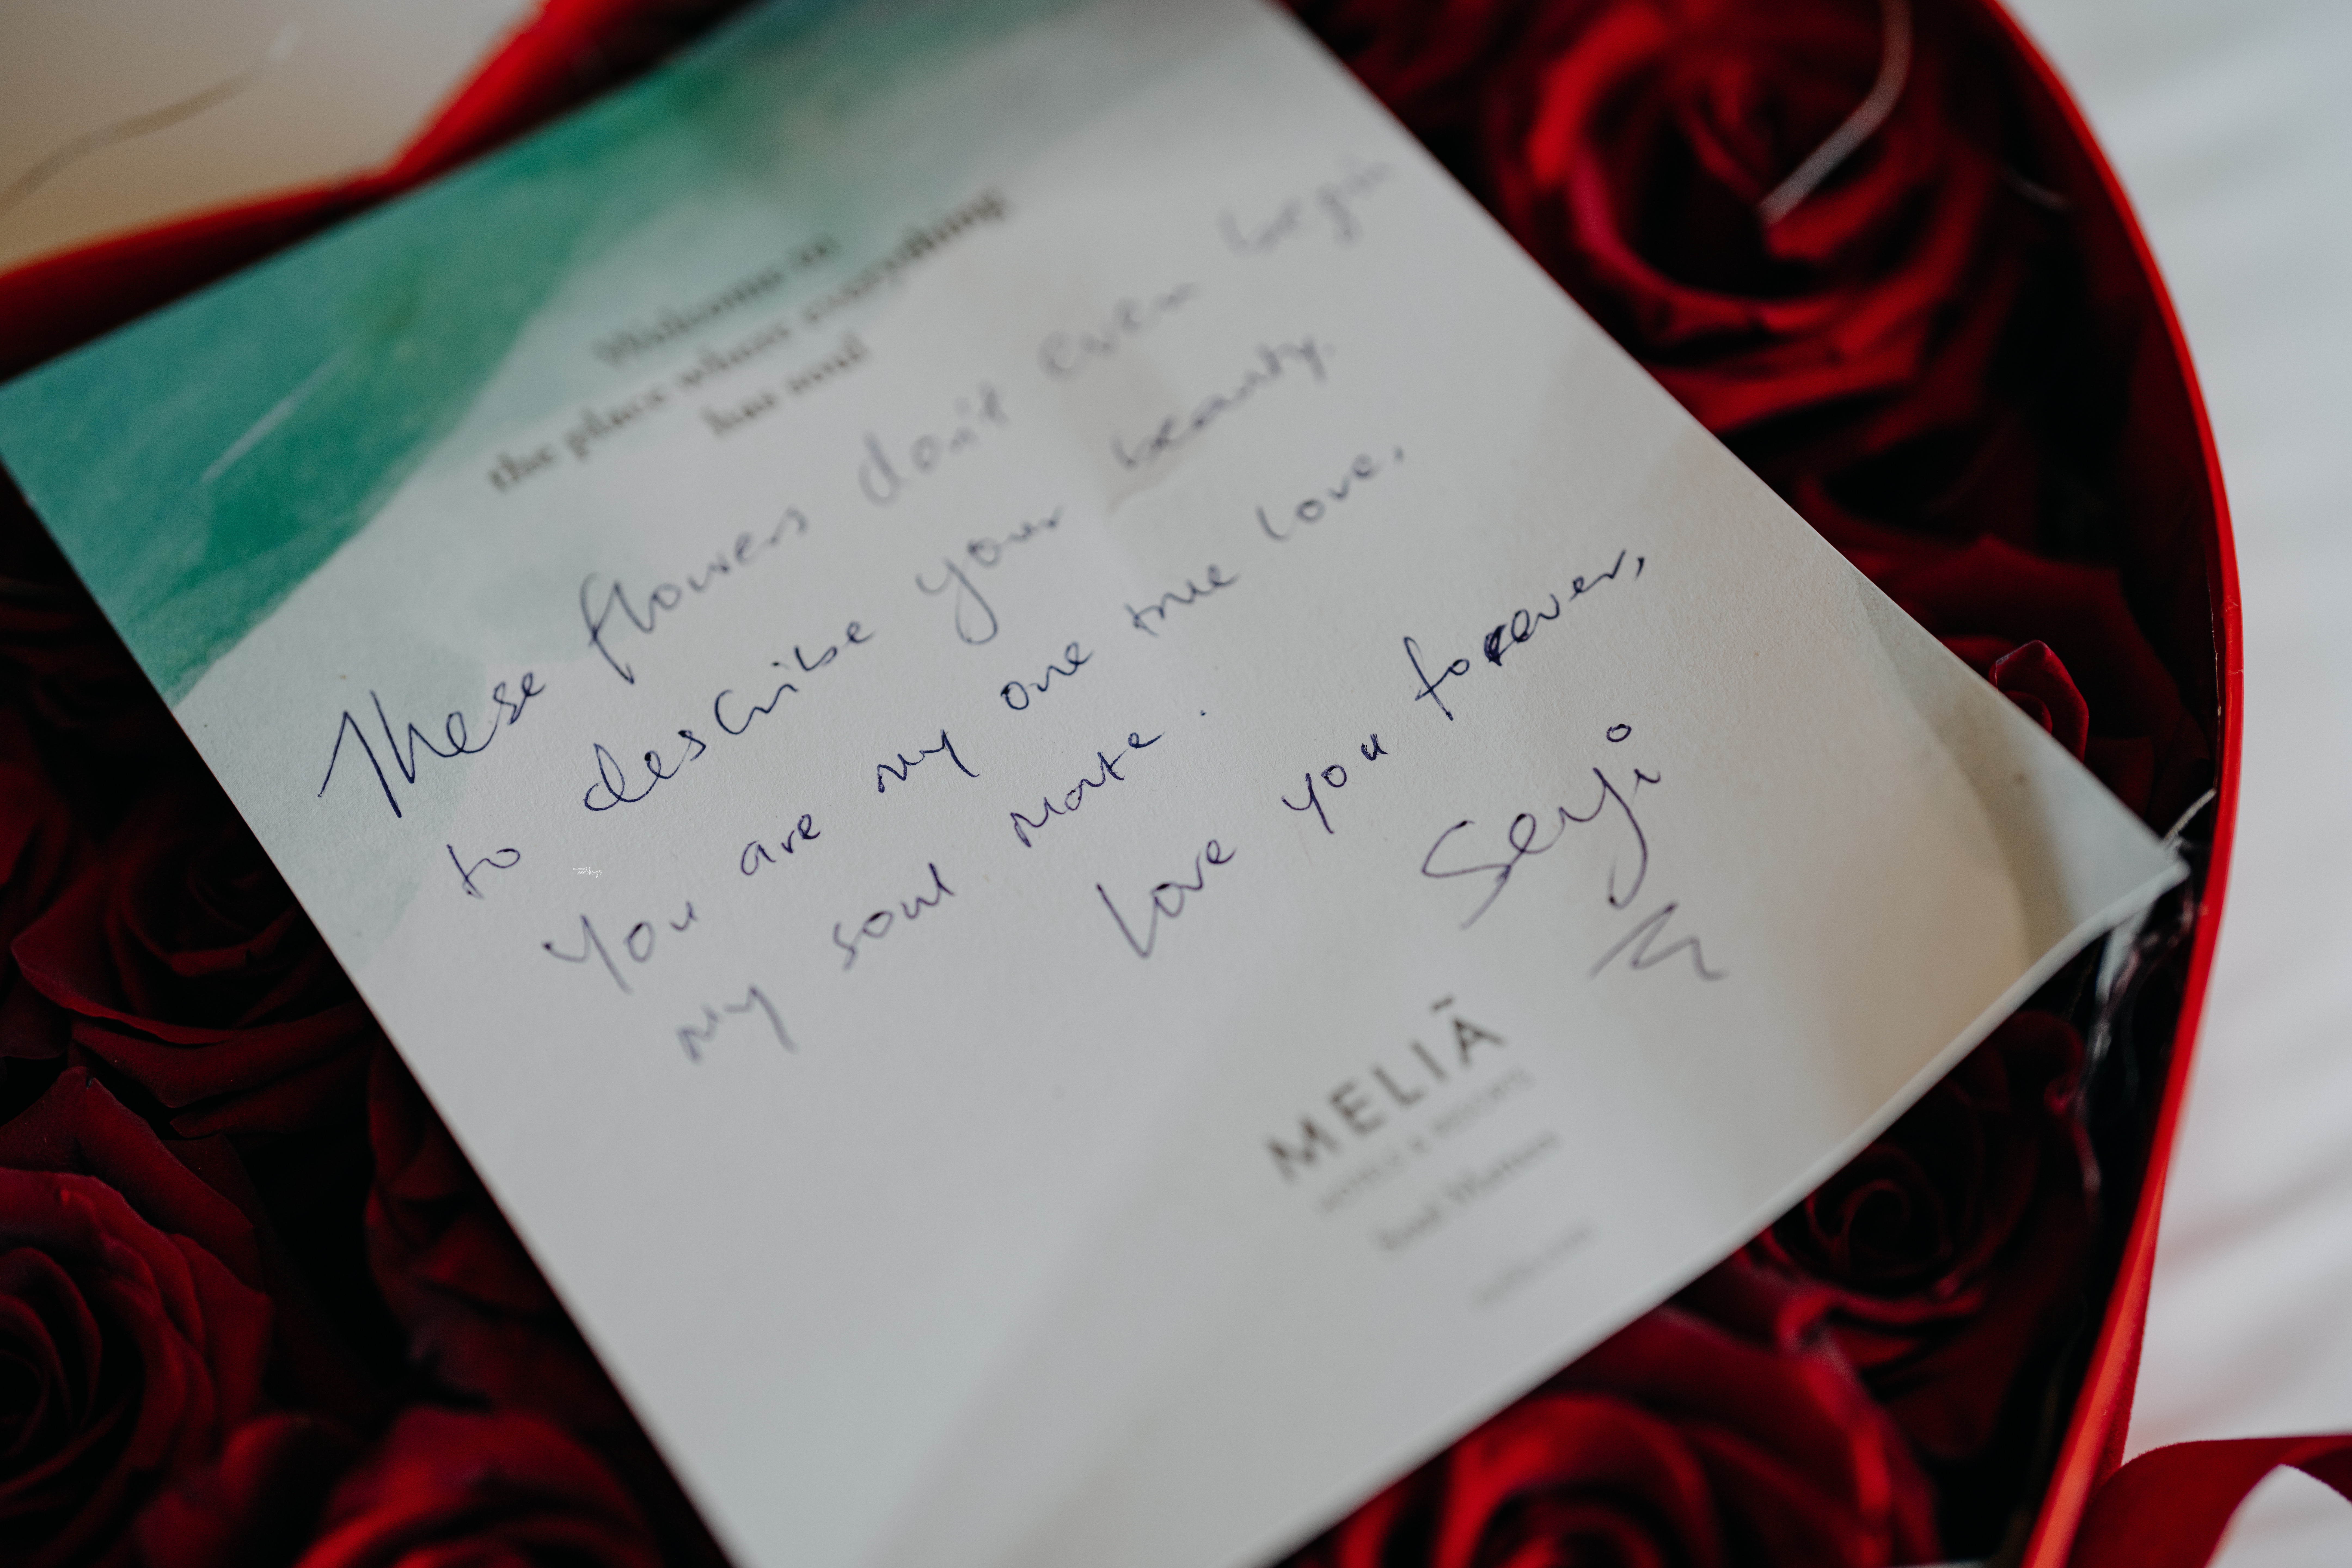 Welcome to
the place where everything
has soul
These flowers don't even begin
to describe your beauty.
You are my one true love,
my soul mate.
Love you forever,
Serji
MELIÃ
HOTELS & RESORTS